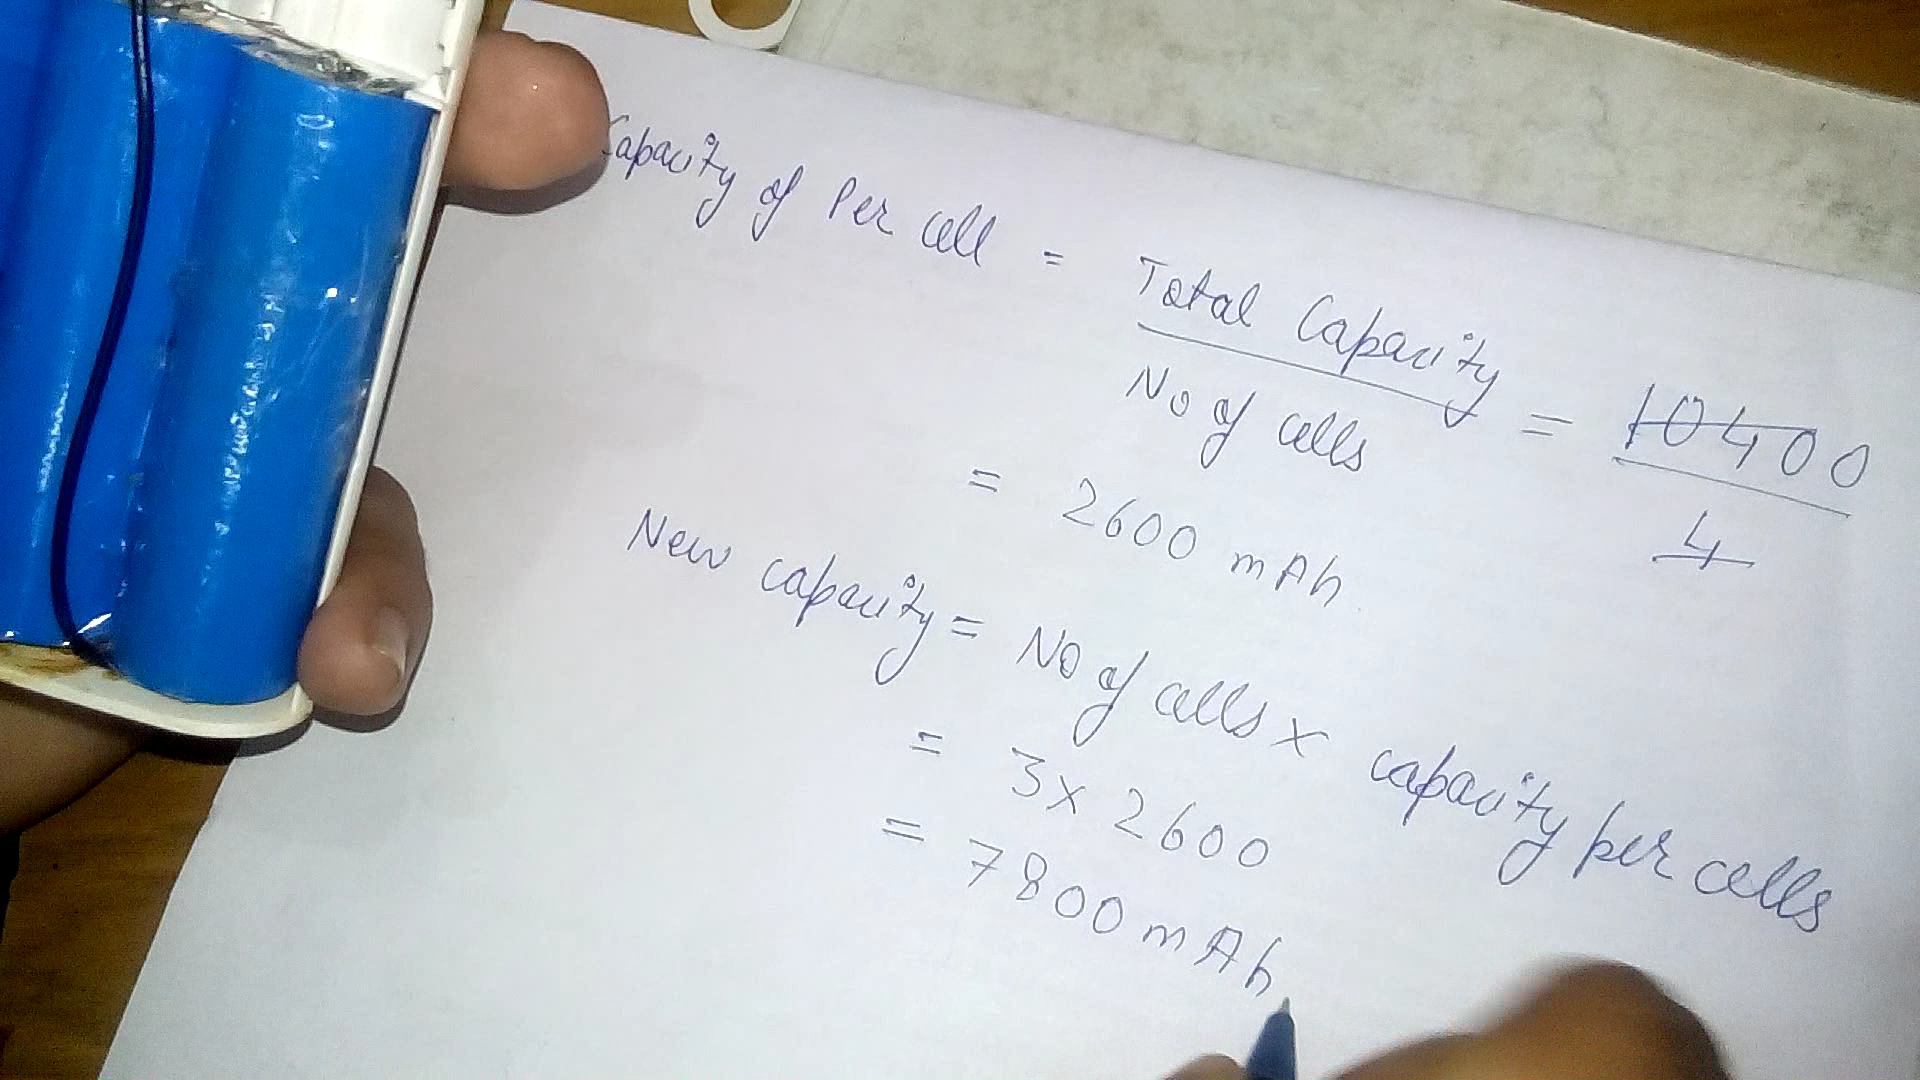 Capacity of Per cell = Total Capacity / No of cells = 10400 / 4
= 2600 mAh
New capacity = No of cells x capacity per cells
= 3 x 2600
= 7800 mAh